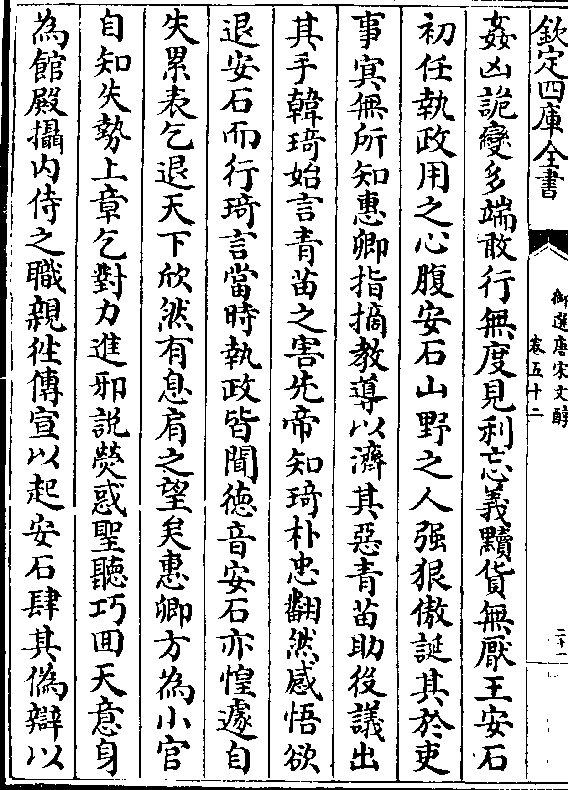 欽定四庫全書
御選唐宋文醇
卷五十二
二十一
姦凶詭變多端敢行無度見利忘義黷貨無厭王安石
初任執政用之心腹安石山野之人强狠傲誕其於吏
事㝠無所知惠卿指擿教導以濟其惡青苗助役議出
其手韓琦始言青苗之害先帝知琦朴忠翻然感悟欲
退安石而行琦言當時執政皆聞徳音安石亦惶遽自
失累表乞退天下欣然有息肩之望矣惠卿方為小官
自知失勢上章乞對力進邪説熒惑聖聽巧囬天意身
為館殿攝内侍之職親往傳宣以起安石肆其偽辯以